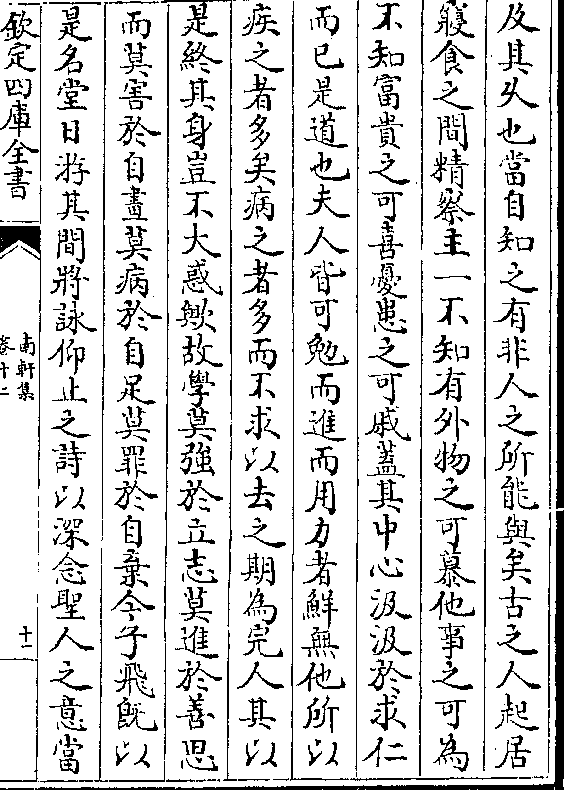 及其久也當自知之有非人之所能與矣古之人起居
寢食之間精察主一不知有外物之可慕他事之可為
不知富貴之可喜憂患之可戚蓋其中心汲汲於求仁
而已是道也夫人皆可勉而進而用力者鮮無他所以
疾之者多矣病之者多而不求以去之期為完人其以
是終其身豈不大惑歟故學莫強於立志莫進於善思
而莫害於自畫莫病於自足莫罪於自棄今子飛旣以
是名堂日游其間將詠仰止之詩以深念聖人之意當
欽定四庫全書
南軒集
卷十二
十一